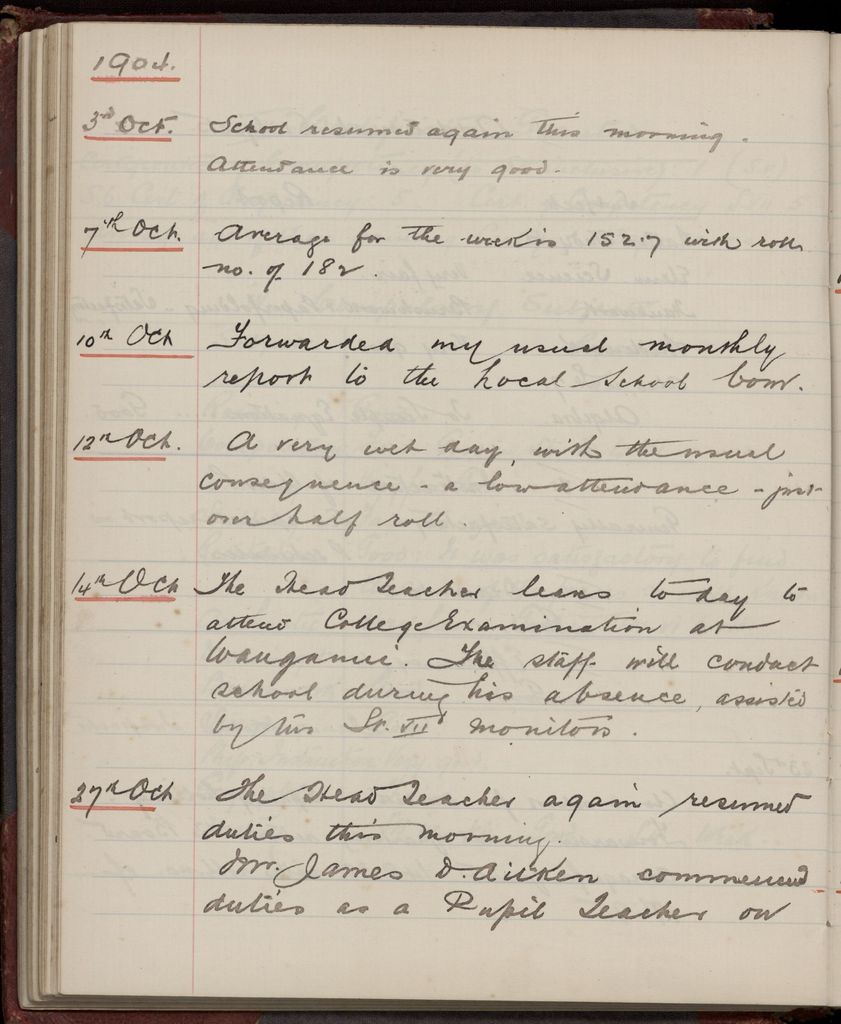 1904.
3rd Oct. School resumed again this morning.
Attendance is very good.
7th Oct. Average for the week is 152.7 with roll
no. of 182.
10th Oct Forwarded my usual monthly
report to the Local School Com.
12th Oct. A very wet day, with the usual
consequence - a low attendance - just
over half roll.
14th Oct The Head Teacher leaves today to
attend College Examination at
Wanganui. The staff will conduct
school during his absence, assisted
by two St. VII monitors.
27th Oct The Head Teacher again resumed
duties this morning.
Mr. James D. Aitken commenced
duties as a Pupil Teacher on